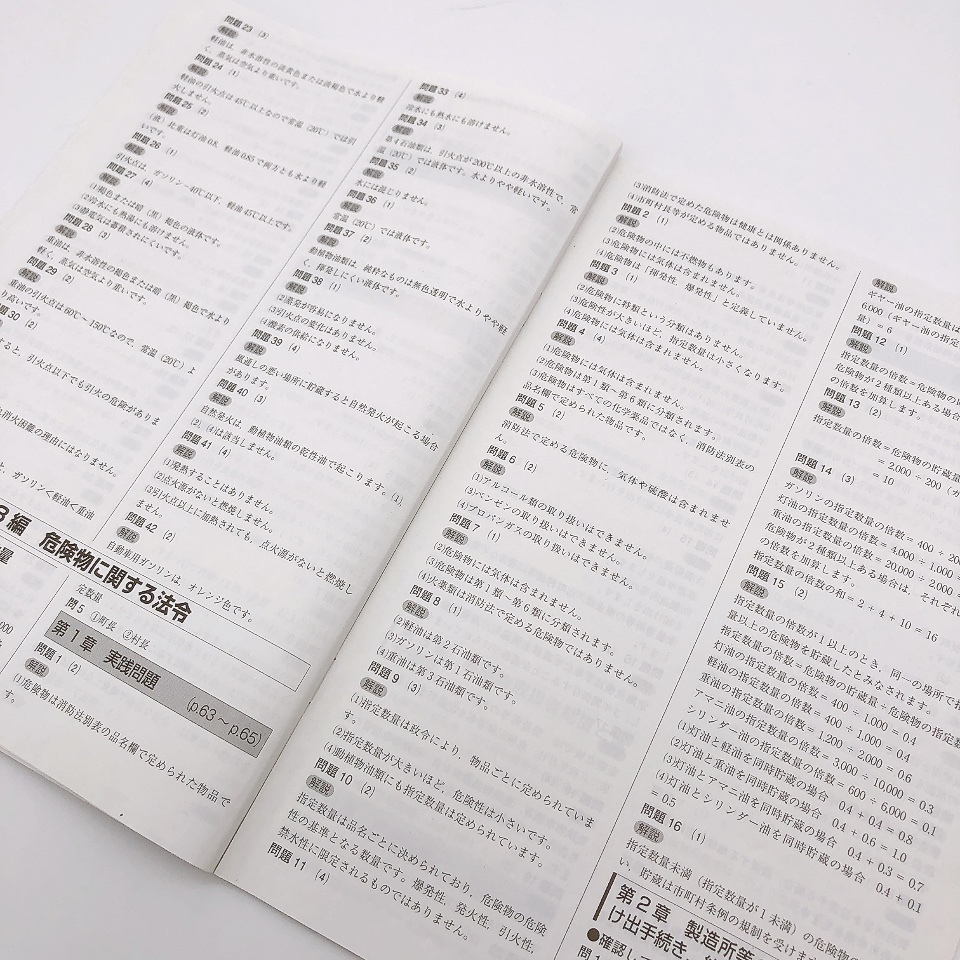 問題23 (3)
解説
軽油は、非水溶性の淡黄色または淡褐色で水より軽
く、蒸気は空気より重いです。
問題24 (1)
解説
軽油の引火点は45℃以上なので常温（20℃）では引
火しません。
問題25 (2)
解説
（液）比重は灯油0.8、軽油0.85で両方とも水より軽
いです。
問題26 (1)
解説
引火点は、ガソリン－40℃以下、軽油45℃以上です。
問題27 (4)
解説
(1)褐色または暗（黒）褐色の液体です。
(2)冷水にも熱湯にも溶けません。
(3)静電気は蓄積されにくいです。
問題28 (3)
解説
重油は、非水溶性の褐色または暗（黒）褐色で水より
軽く、蒸気は空気より重いです。
問題29 (2)
解説
重油の引火点は60℃～150℃なので、常温（20℃）よ
り高いです。
題30 (2)
すると、引火点以下でも引火の危険がありま
消火困難の理由にはなりません。
、ガソリン＜軽油＜重油
3編 危険物に関する法令
定数量
問5 ①町長 ②村長
第1章 実践問題 (p.63～p.65)
問題1 (2)
解説
(1)危険物は消防法別表の品名欄で定められた物品で
す。
問題33 (4)
解説
冷水にも熱水にも溶けません。
問題34 (3)
解説
第4石油類は、引火点が200℃以上の非水溶性で、常
温（20℃）では液体です。水よりやや軽いです。
問題35 (2)
解説
水には混じりません。
問題36 (1)
解説
常温（20℃）では液体です。
問題37 (2)
解説
動植物油類は、純粋なものは無色透明で水よりやや軽
く、揮発しにくい液体です。
問題38 (1)
解説
(2)蒸発が容易になりません。
(3)引火点の変化はありません。
(4)酸素の供給になりません。
問題39 (4)
解説
風通しの悪い場所に貯蔵すると自然発火が起こる場合
があります。
問題40 (3)
解説
自然発火は、動植物油類の乾性油で起こります。(1)、
(2)、(4)は該当しません。
問題41 (4)
解説
(1)発熱することはありません。
(2)点火源がないと燃焼しません。
(3)引火点以上に加熱されても、点火源がないと燃焼し
ません。
問題42 (2)
解説
自動車用ガソリンは、オレンジ色です。
(3)消防法で定めた危険物は健康とは関係ありません。
(4)市町村長等が定める物品ではありません。
問題2 (1)
解説
(2)危険物の中には不燃物もあります。
(3)危険物には気体は含まれません。
(4)危険物は「揮発性、爆発性」と定義していません。
問題3 (1)
解説
(2)危険物に特類という分類はありません。
(3)危険性が大きいほど、指定数量は小さくなります。
(4)危険物には気体は含まれません。
問題4 (4)
解説
(1)危険物には気体は含まれません。
(2)危険物は第1類～第6類に分類されます。
(3)危険物はすべての化学薬品ではなく、消防法別表の
品名欄で定められた物品です。
問題5 (2)
解説
消防法で定める危険物に、気体や硫酸は含まれませ
ん。
問題6 (2)
解説
(1)アルコール類の取り扱いはできません。
(3)ベンゼンの取り扱いはできません。
(4)プロパンガスの取り扱いはできません。
問題7 (1)
解説
(2)危険物には気体は含まれません。
(3)危険物は第1類～第6類に分類されます。
(4)火薬類は消防法で定める危険物ではありません。
問題8 (1)
解説
(2)軽油は第2石油類です。
(3)ガソリンは第1石油類です。
(4)重油は第3石油類です。
問題9 (3)
解説
(1)指定数量は政令により、物品ごとに定められていま
す。
(2)指定数量が大きいほど、危険性は小さいです。
(4)動植物油類にも指定数量は定められています。
問題10 (2)
解説
指定数量は品名ごとに決められており、危険物の危険
性の基準となる数量です。爆発性、発火性、引火性、
禁水性に限定されるものではありません。
問題11 (4)
解説
ギヤー油の指定数量は
6,000（ギヤー油の指定
量）＝6
問題12 (1)
解説
指定数量の倍数＝危険物の
危険物が2種類以上ある場合
の倍数を加算します。
問題13 (2)
解説
指定数量の倍数＝危険物の貯蔵量
＝2,000÷200（ガ
＝10
問題14 (3)
解説
ガソリンの指定数量の倍数＝400÷20
灯油の指定数量の倍数＝4,000÷1,000＝
重油の指定数量の倍数＝20,000÷2,000＝
危険物が2種類以上ある場合は、それぞれ
の倍数を加算します。
指定数量の倍数の和＝2＋4＋10＝16
問題15 (2)
解説
指定数量の倍数が1以上のとき、同一の場所で指
量以上の危険物を貯蔵したとみなされます。
指定数量の倍数＝危険物の貯蔵量÷危険物の指定数
灯油の指定数量の倍数＝400÷1,000＝0.4
軽油の指定数量の倍数＝400÷1,000＝0.4
重油の指定数量の倍数＝1,200÷2,000＝0.6
アマニ油の指定数量の倍数＝3,000÷10,000＝0.3
シリンダー油の指定数量の倍数＝600÷6,000＝0.1
(1)灯油と軽油を同時貯蔵の場合 0.4＋0.4＝0.8
(2)灯油と重油を同時貯蔵の場合 0.4＋0.6＝1.0
(3)灯油とアマニ油を同時貯蔵の場合 0.4＋0.3＝0.7
(4)灯油とシリンダー油を同時貯蔵の場合 0.4＋0.1
＝0.5
問題16 (1)
解説
指定数量未満（指定数量が1未満）の危険物の
い、貯蔵は市町村条例の規制を受けます
第2章 製造所等
け出手続き、
●確認し
問1